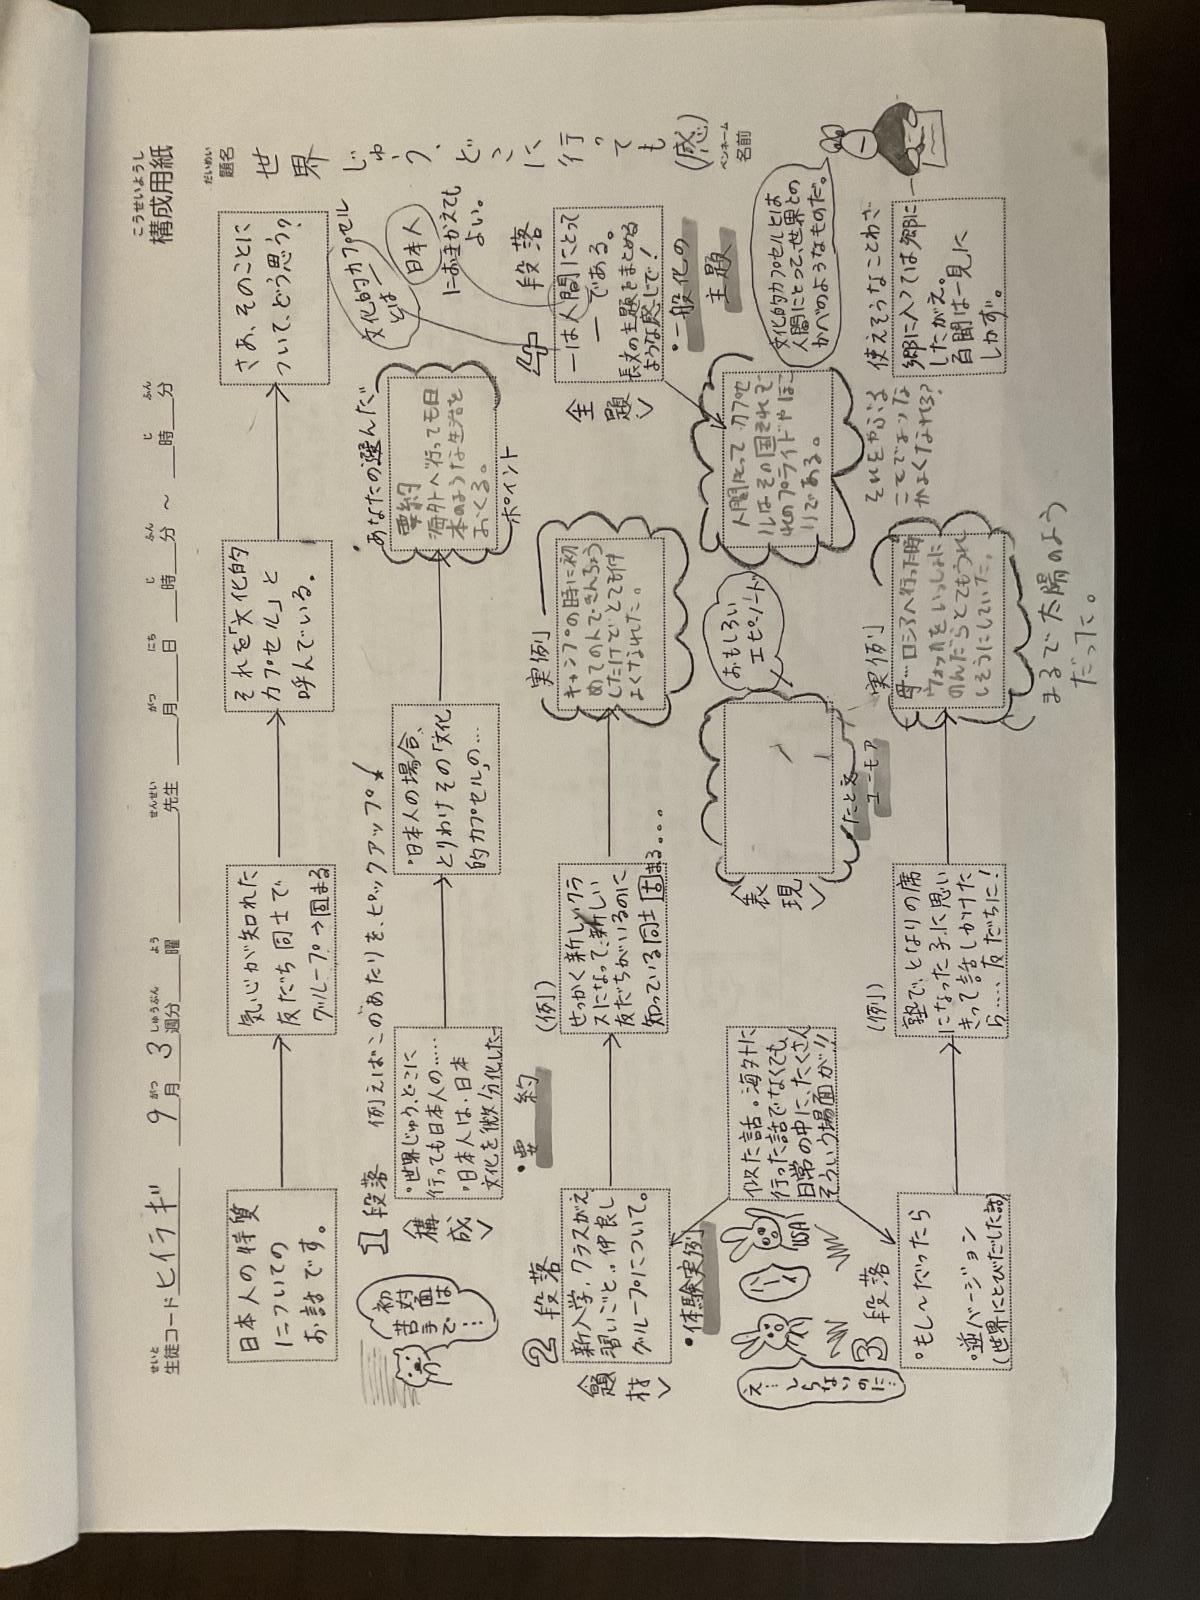 こうせいようし
構成用紙
せいと
生徒コード ヒイラギ
9月 3週分 曜 先生 月 日 時 分 ～ 時 分
がつ しゅうぶん よう せんせい がつ にち じ ふん じ ふん
だいめい
題名
世界じゅう、どこに行っても(感)
ペンネーム
名前
日本人の特質
についての
お話です。
気心が知れた
友だち同士で
グループ→固まる
それを「文化的
カプセル」と
呼んでいる。
さあ、そのことに
ついて、どう思う?
1段落
〈構成〉
例えばこのあたりを、ピックアップ!
・世界じゅう、どこに
行っても日本人の……
・日本人は、日本
文化を微分化した…
・要約
・日本人の場合、
とりわけその「文化
的カプセル」の…
・あなたの選んだ
ポイント
要約
海外へ行っても日
本のような生活を
おくる。
初対面は
苦手で…
2段落
〈題材〉
新入学、クラスがえ
習いごと…仲良し
グループについて。
・体験実例
(例)
せっかく新しいクラ
スになって、新しい
友だちがいるのに
知っている同士固まる...
実例
キャンプの時に初
めての人できんちょう
したけど、とても仲
よくなれた。
似た話。海外に
行った話でなくても、
日常の中に、たくさん
そういう場面が!!
え…
しらないのに…
USA
3段落
・もし〜だったら
・逆バージョン
(世界にとびだした話)
(例)
塾で、となりの席
になった子に思い
きって話しかけた
ら……友だちに!
実例
母…ロシアへ行った時
ウォッカをいっしょに
のんだらとてもうれ
しそうにしていた。
まるで太陽のよう
だった。
〈表現〉
たとえ
ユーモア
おもしろい
エピソード
4段落
〈主題〉
―は人間にとって
―である。
長文の主題をまとめる
ような感じで!
・一般化の
主題
文化的カプセル
とは
日本人
におきかえても
よい。
人間にとって カプセ
ルはその国それぞ
れのプライドやほこ
りである。
文化的カプセルとは
人間にとって、世界との
かべのようなものだ。
それをやぶる
ことで
なかよくなれる?
使えそうなことわざ
郷に入っては郷に
したがえ。
百聞は一見に
しかず。